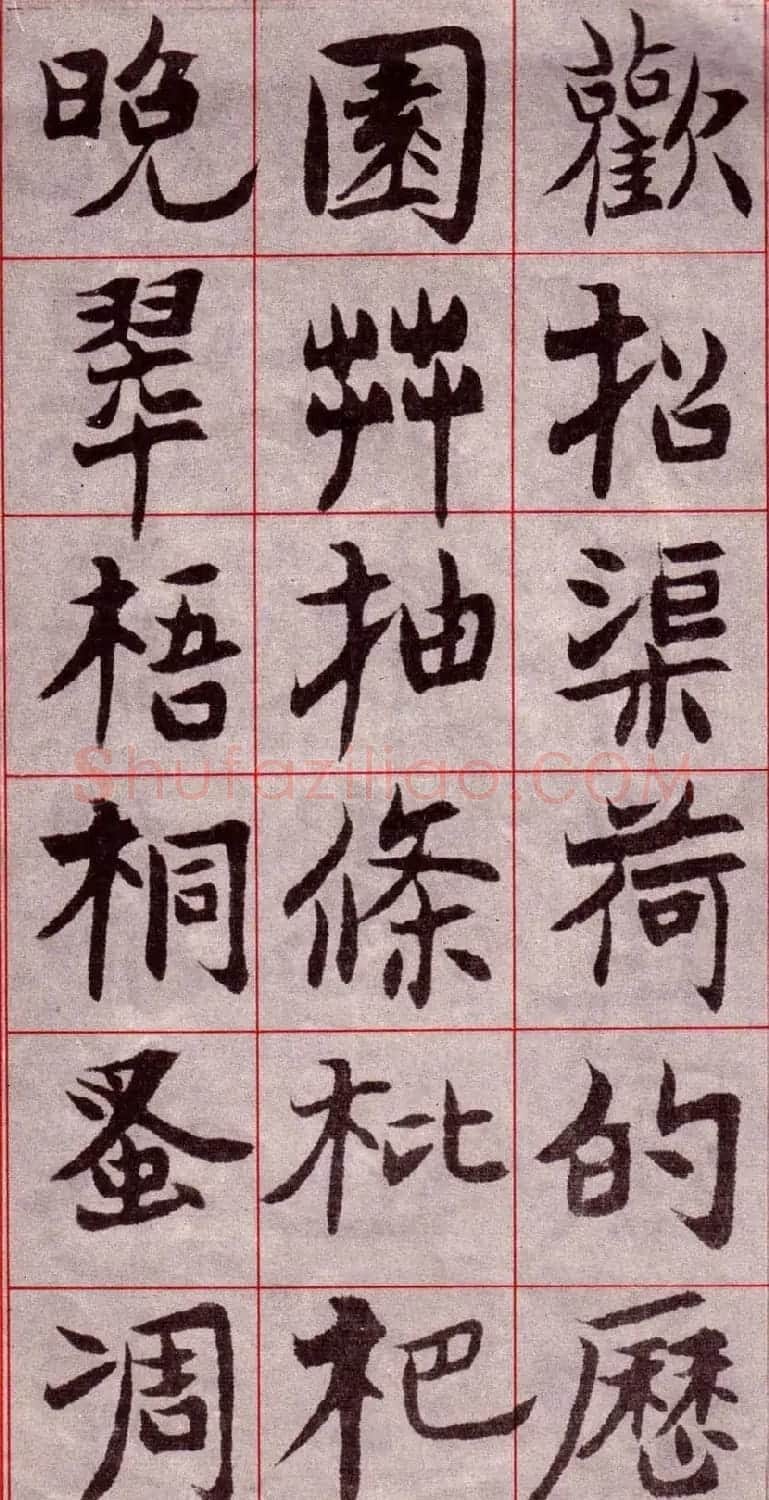 歡招渠荷的歷
園莽抽條枇杷
晚翠梧桐蚤凋
Shufaziliao.COM